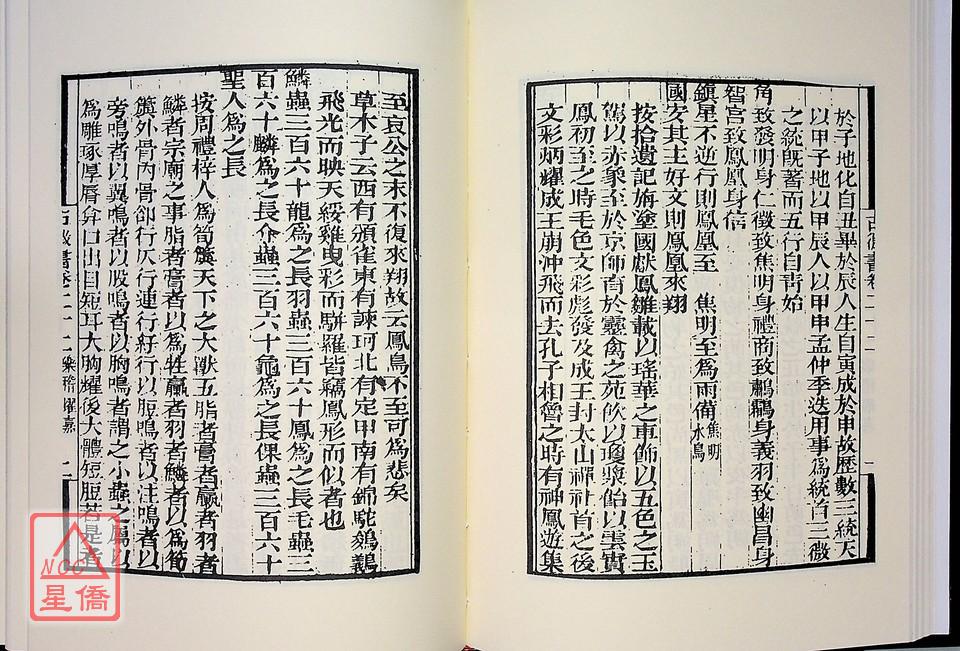 於子地化自丑畢於辰人生自寅成於申故歷數三統天
以甲子地以甲辰人以甲申孟仲季迭用事爲統首三微
之統旣著而五行自靑始
角致發明身仁徵致焦明身禮商致鷫鸘身義羽致幽昌身
智宮致鳳凰身信
鎭星不逆行則鳳凰至 焦明至爲雨備焦明水鳥
國安其主好文則鳳凰來翔
按拾遺記旃塗國獻鳳雛載以瑤華之車飾以五色之玉
駕以赤象至於京師育於靈禽之苑飲以瓊漿飴以雲實
鳳初至之時毛色文彩彪發及成王封太山禪社首之後
文彩炳燿成王崩沖飛而去孔子相魯之時有神鳳遊集
至哀公之末不復來翔故云鳳鳥不至可爲悲矣
草木子云西有頒雀東有諫珂北有定甲南有錦駝鵕鸃
飛光而映天綬雞曳彩而駢羅皆竊鳳形而似者也
鱗蟲三百六十龍爲之長羽蟲三百六十鳳爲之長毛蟲三
百六十麟爲之長介蟲三百六十龜爲之長倮蟲三百六十
聖人爲之長
按周禮梓人爲筍簴天下之大獸五脂者膏者臝者羽者
鱗者宗廟之事脂者膏者以爲牲臝者羽者鱗者以爲筍
簴外骨內骨卻行仄行連行紆行以脰鳴者以注鳴者以
旁鳴者以翼鳴者以股鳴者以胸鳴者謂之小蟲之屬以
爲雕琢厚脣弇口出目短耳大胸燿後大體短脰若是者
古微書卷二十二
一
古微書卷二十二 樂稽耀嘉
二
NCC
星僑